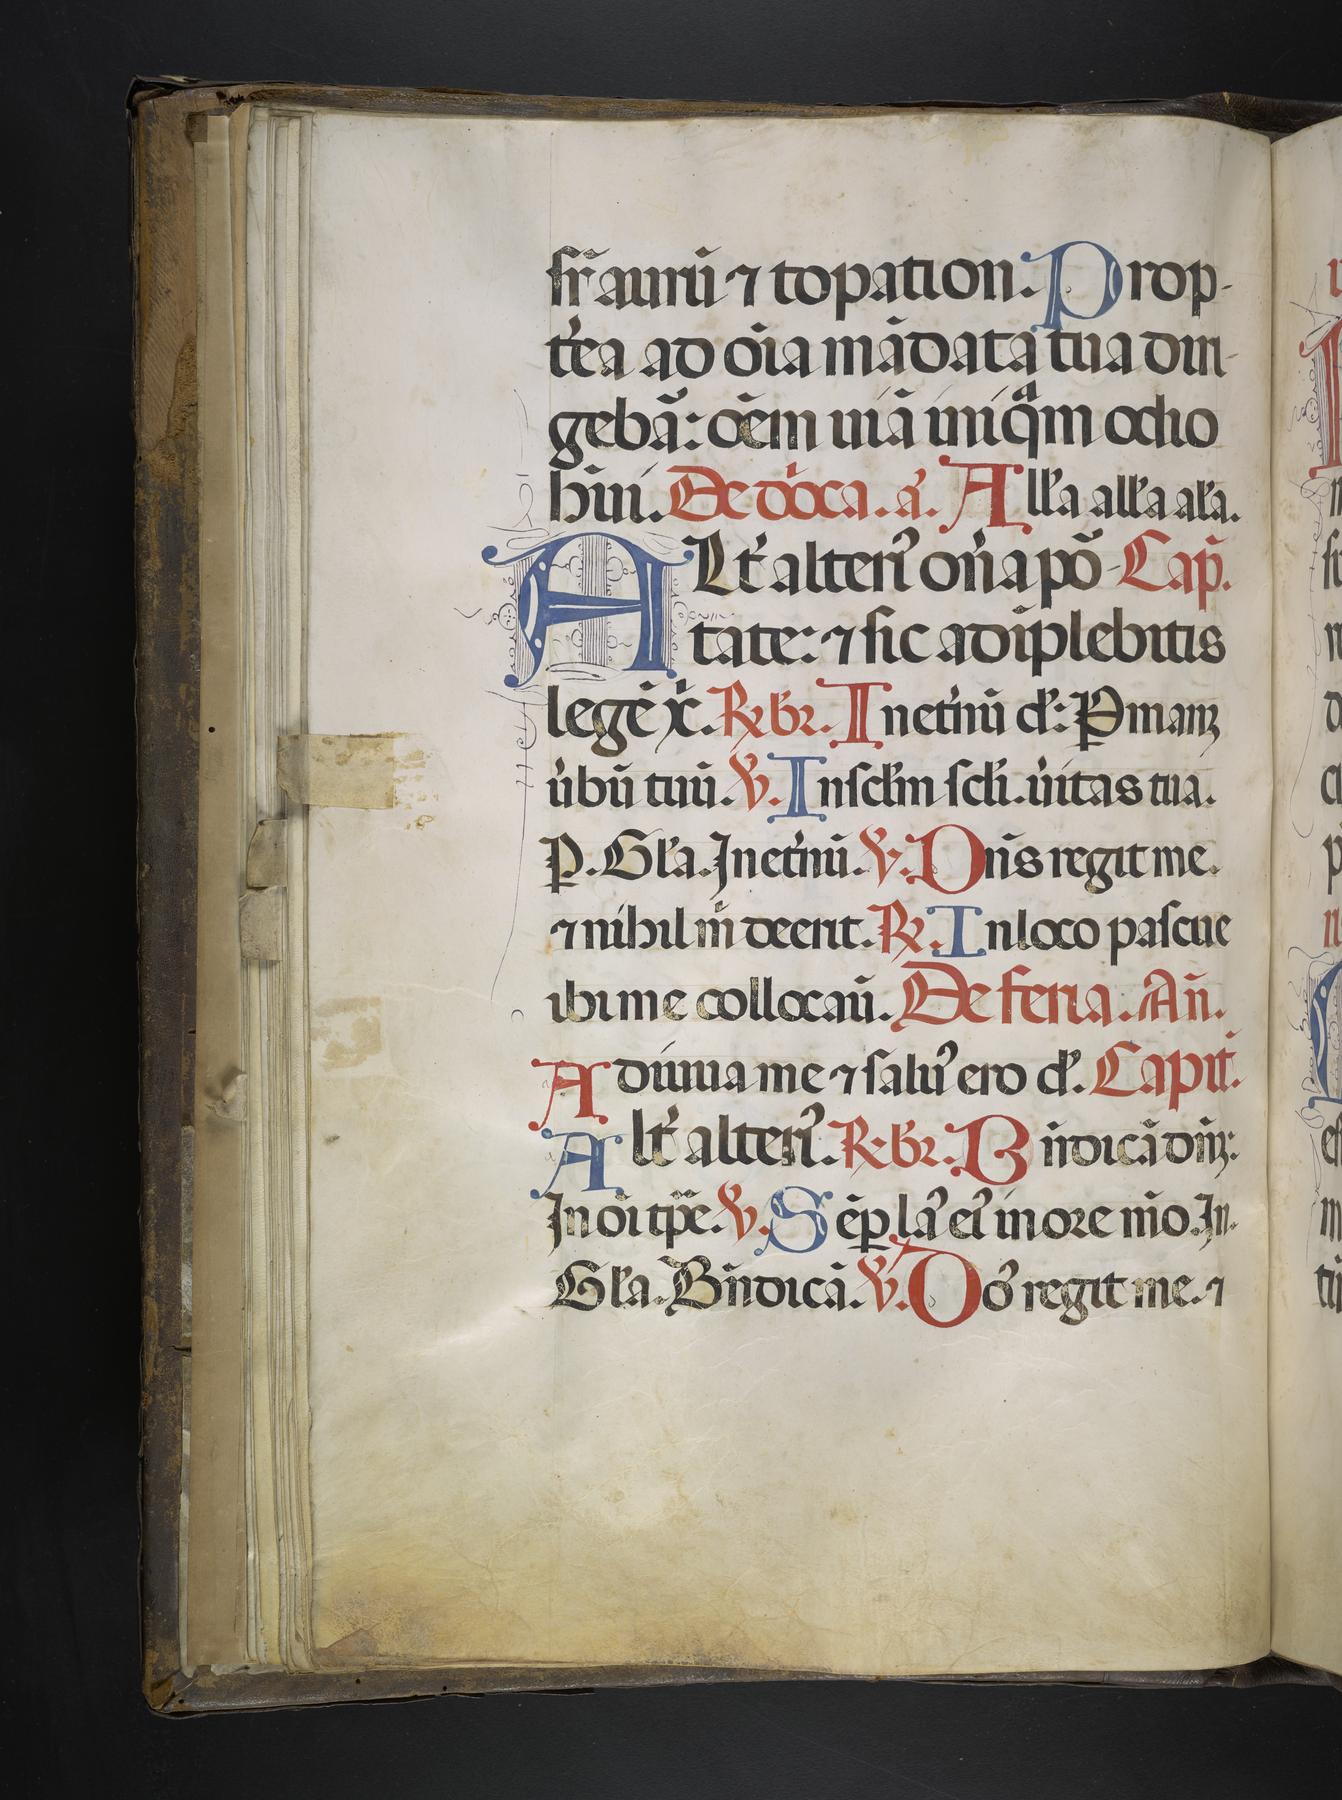 sr̄ aurū ⁊ topation. Prop-
t'ea ad oīa mādata tua diri-
gebā: oēm uiā iniqͣm odio
hūi. De dn̄ca. a. All'a all'a al'a.
Alt' alteriꝰ on'a pō- Cap̄.
tate: ⁊ sic adīplebitis
legē x̄. R br. In et'nū d': P̄maꝫ
ūbū tuū. V. In sclm scli. ūitas tua.
P. Gl'a. In et'nū. V. Dn̄s regit me.
⁊ nihil m̄ deerit. R. In loco pascue
ibi me collocaū. De feria. An̄.
Adiuua me ⁊ saluꝰ ero d'. Capit.
Alt' alteriꝰ. R. br. Bn̄dicā dn̄ꝫ:
In oī tp̄e. V. Sēp laꝰ eiꝰ in ore m̄o. In.
Gl'a. Bn̄dicā. V. Doꝰ regit me. ⁊